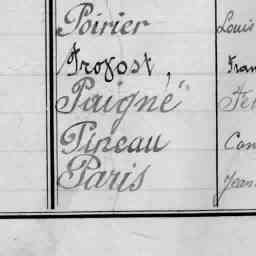 Poirier Louis
Provost, Fran
Paigné"
Pineau
Paris Jean